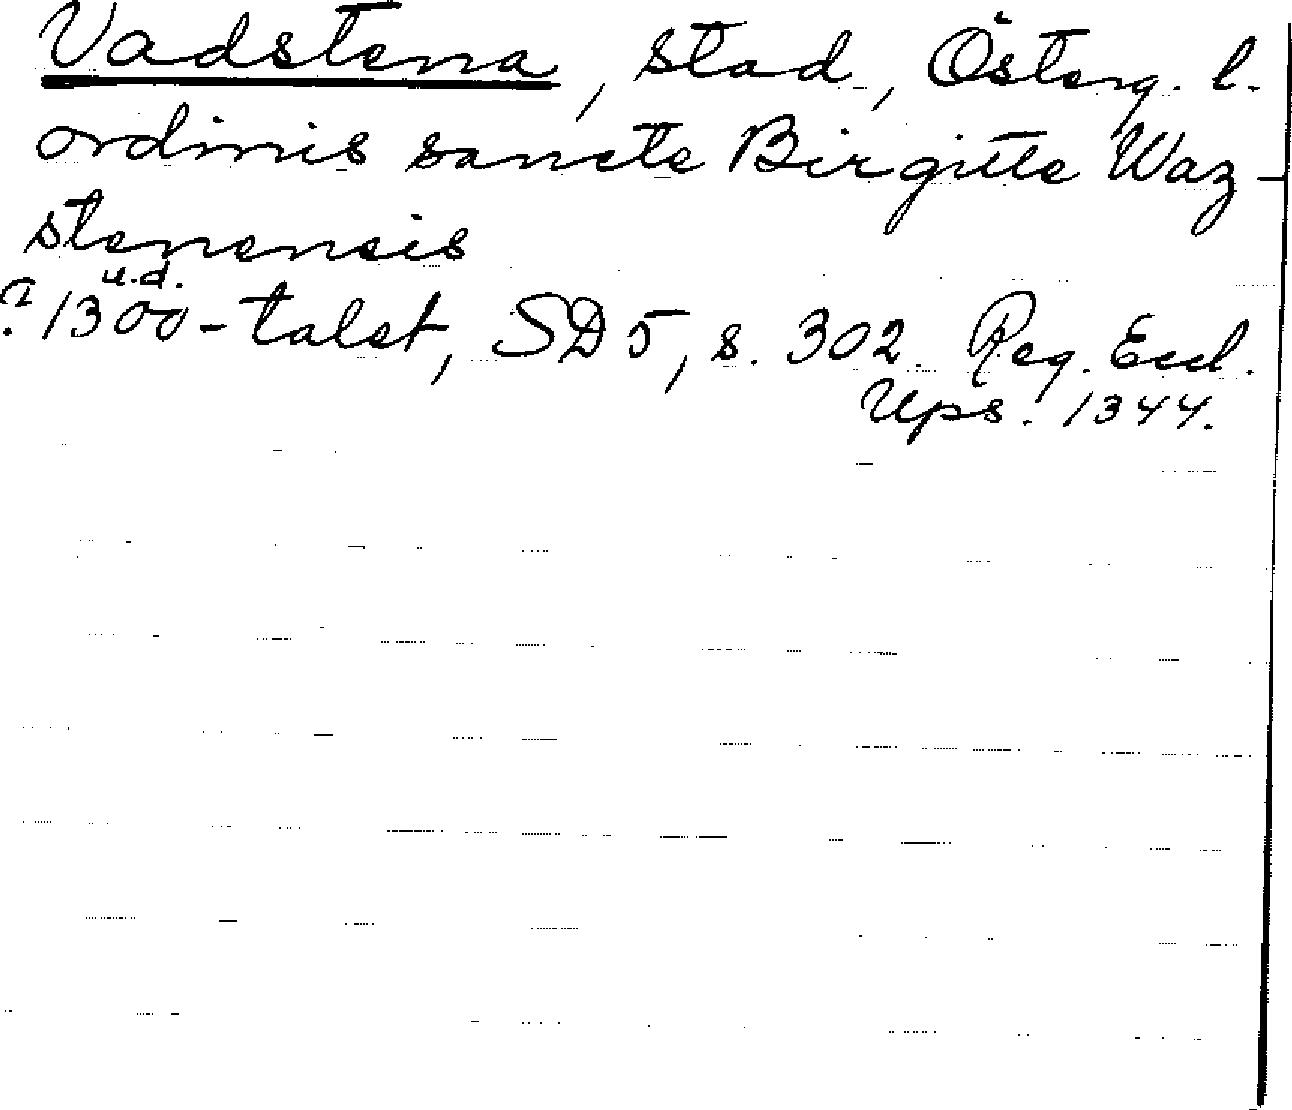 Vadstena, stad, Österg. l.
ordinis sancte Birgitte Waz-
stenensis
u.d.
? 1300-talet, SD 5, s. 302. Reg. Eccl.
Ups. 1344.